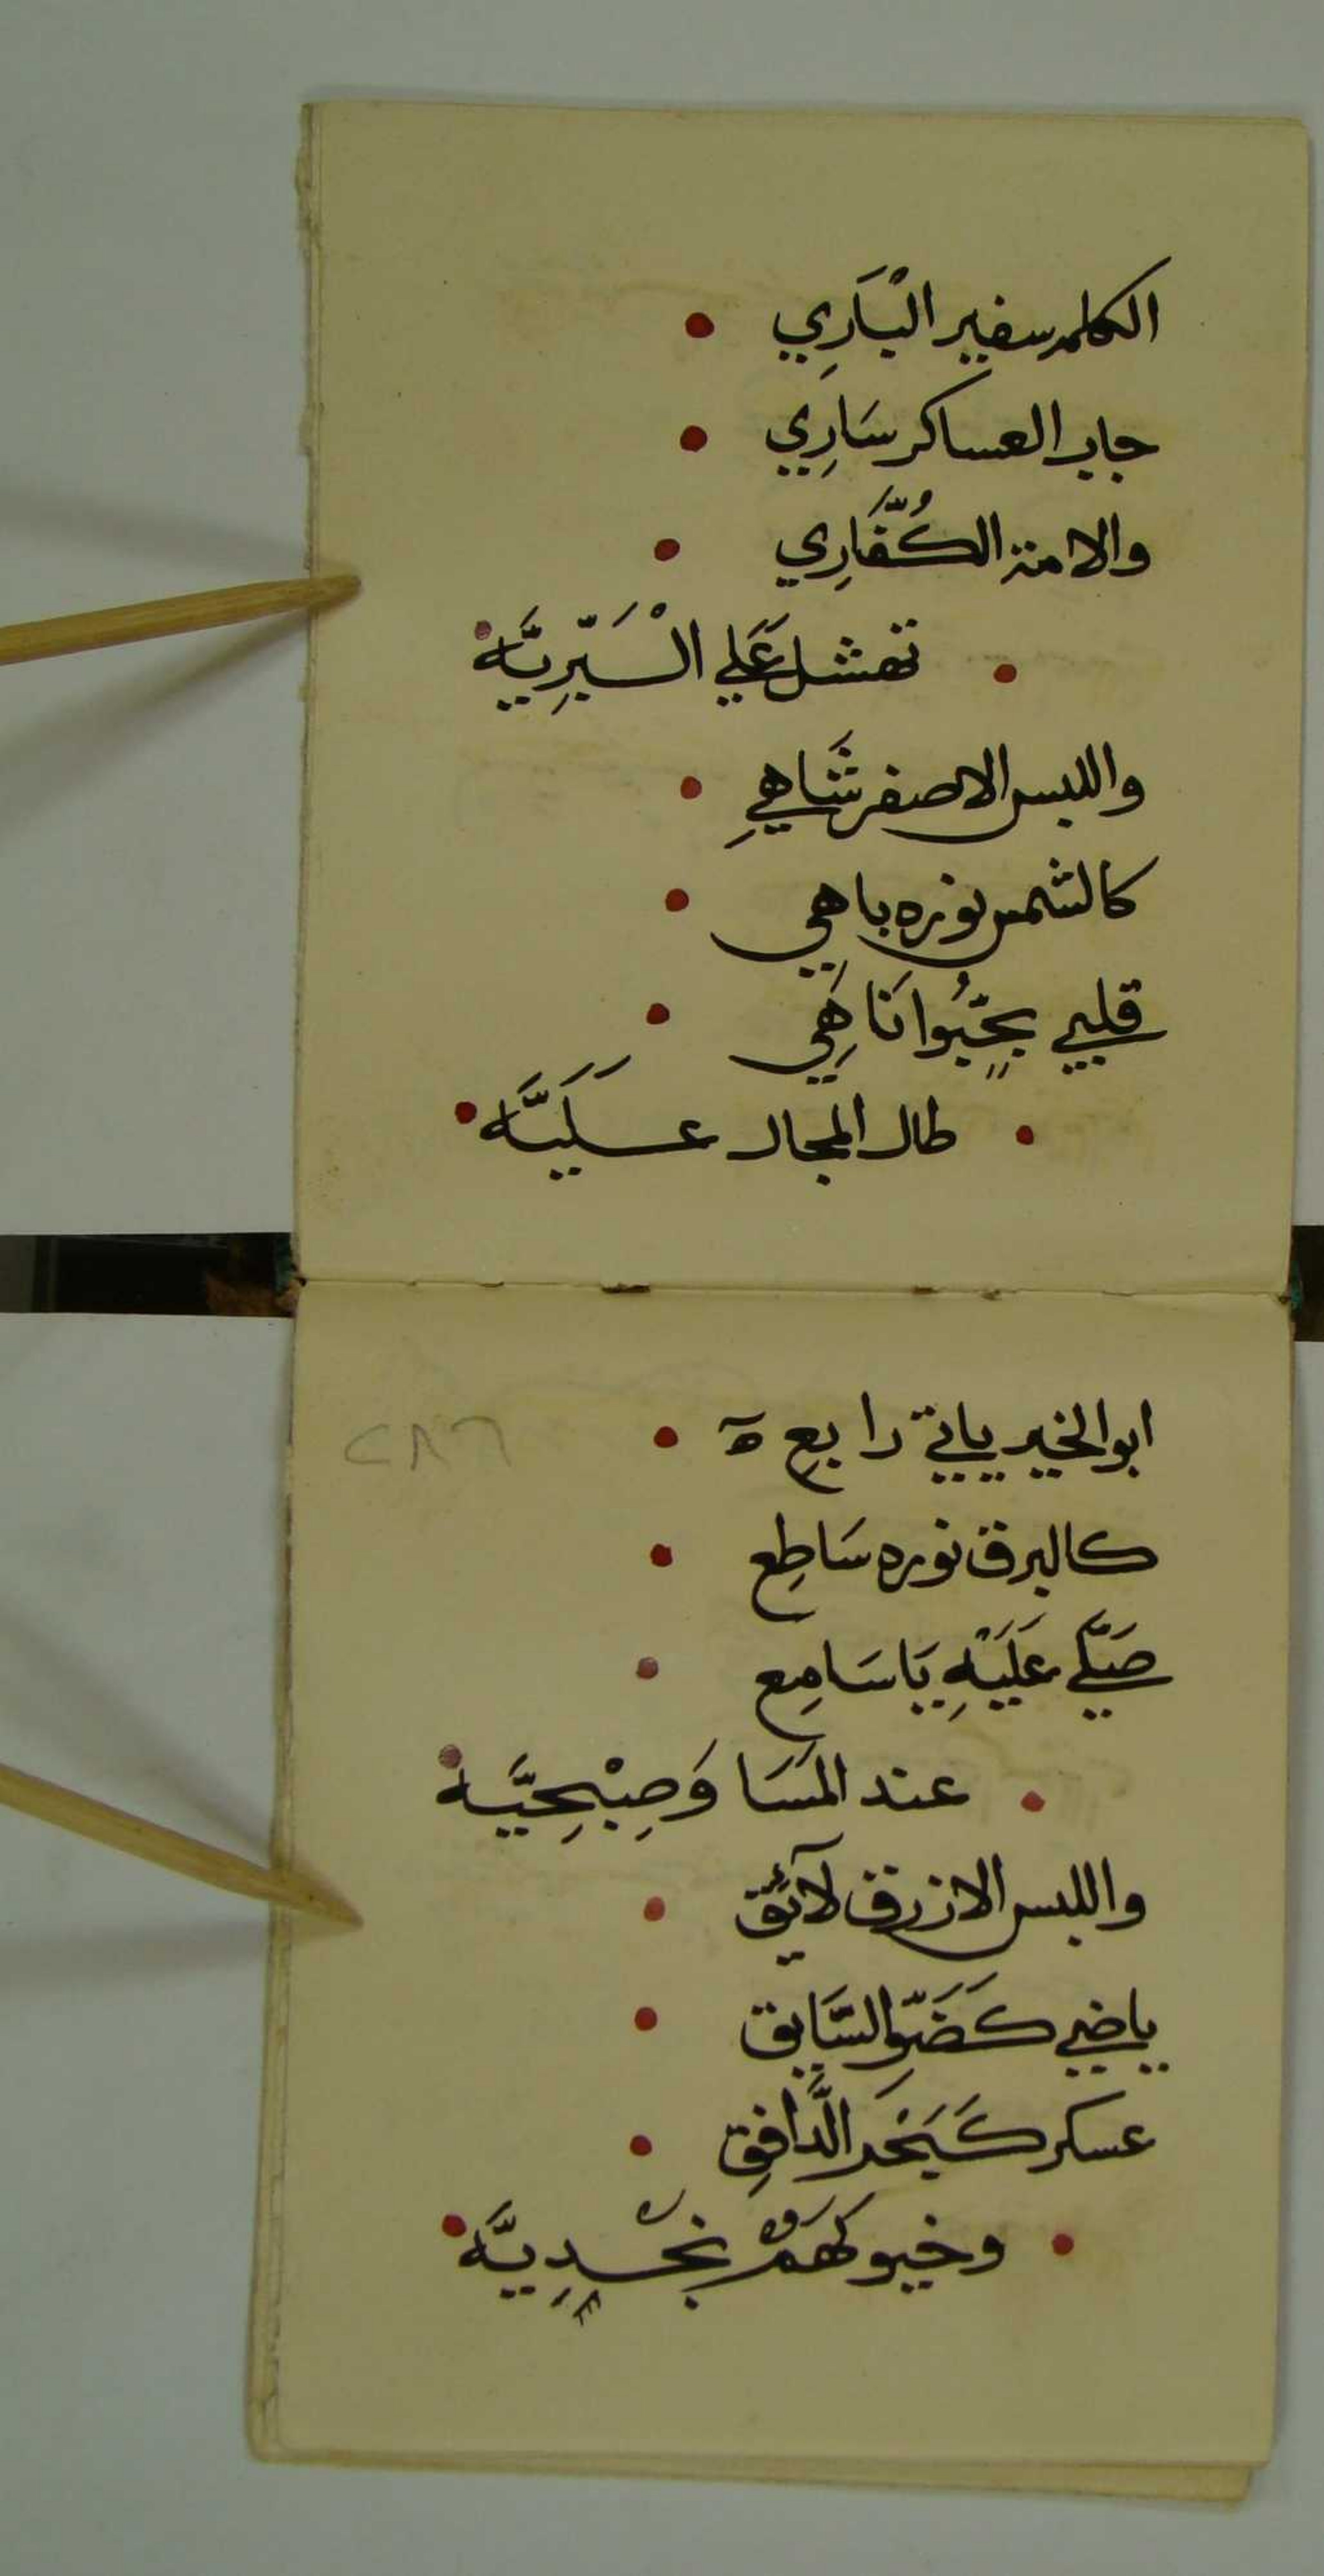 الكلمه سفير الْبَارِي •
جاب العساكر سَارِي •
والامة الكُفَّارِي •
• تفشل عَلي السَّبَرِيَّه •
واللبس الاصفر شَاهِي •
كالشمس نوره باهي •
قلبي بحِبُّوا نَاهِي •
• طال المجال عَلَيَّه •
ابو الخير ياتي رابع ة •
كالبرق نوره سَاطِع •
صَلّي عَلَيْهِ يَا سَامِع •
• عند المَسَا وَصِبْحِيَّه •
واللبس الازرق لآئق •
ياضي كَضَوِّ السَّابق •
عسكر كَبَحْر الدَّافِق •
• وخيولهم نجدِيَّه •
٢٨٦